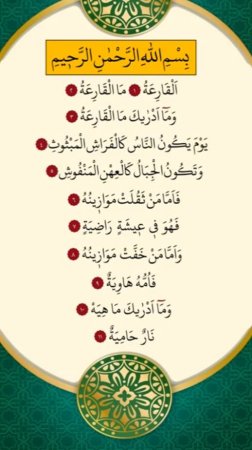 بِسْمِ اللهِ الرَّحْمٰنِ الرَّحِيمِ
اَلْقَارِعَةُ ١ مَا الْقَارِعَةُ ٢
وَمَٓا اَدْرٰيكَ مَا الْقَارِعَةُ ٣
يَوْمَ يَكُونُ النَّاسُ كَالْفَرَاشِ الْمَبْثُوثِ ٤
وَتَكُونُ الْجِبَالُ كَالْعِهْنِ الْمَنْفُوشِ ٥
فَاَمَّا مَنْ ثَقُلَتْ مَوَازِينُهُ ٦
فَهُوَ فٖي عٖيشَةٍ رَاضِيَةٍ ٧
وَاَمَّا مَنْ خَفَّتْ مَوَازٖينُهُ ٨
فَاُمُّهُ هَاوِيَةٌ ٩
وَمَٓا اَدْرٰيكَ مَا هِيَهْ ١٠
نَارٌ حَامِيَةٌ ١١